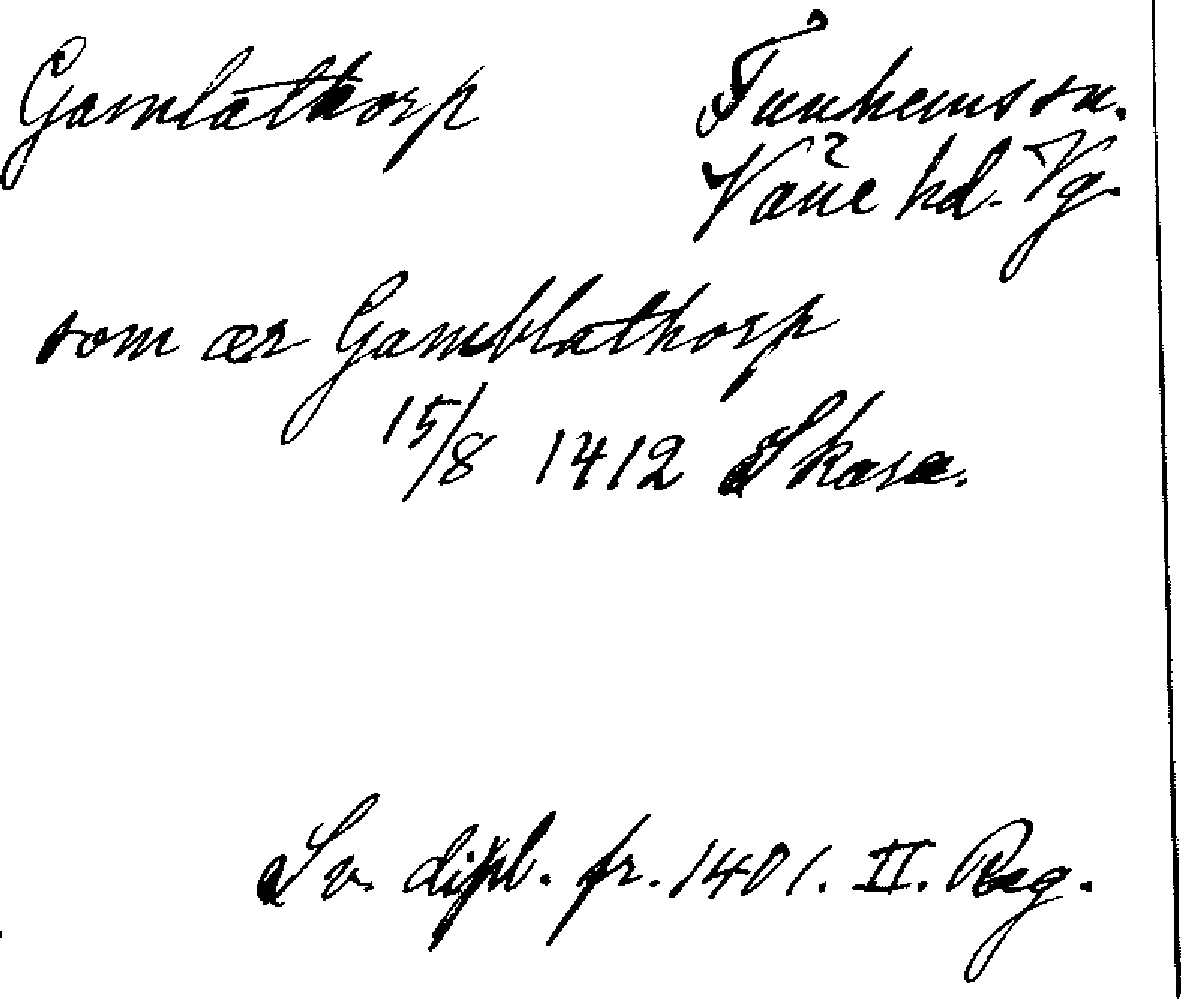 Gamlathorp Tunhems sn.
Väne hd. Vg.
som ær Gamblathorp
15/8 1412 Skara.
Sv. dipl. fr. 1401. II. Reg.